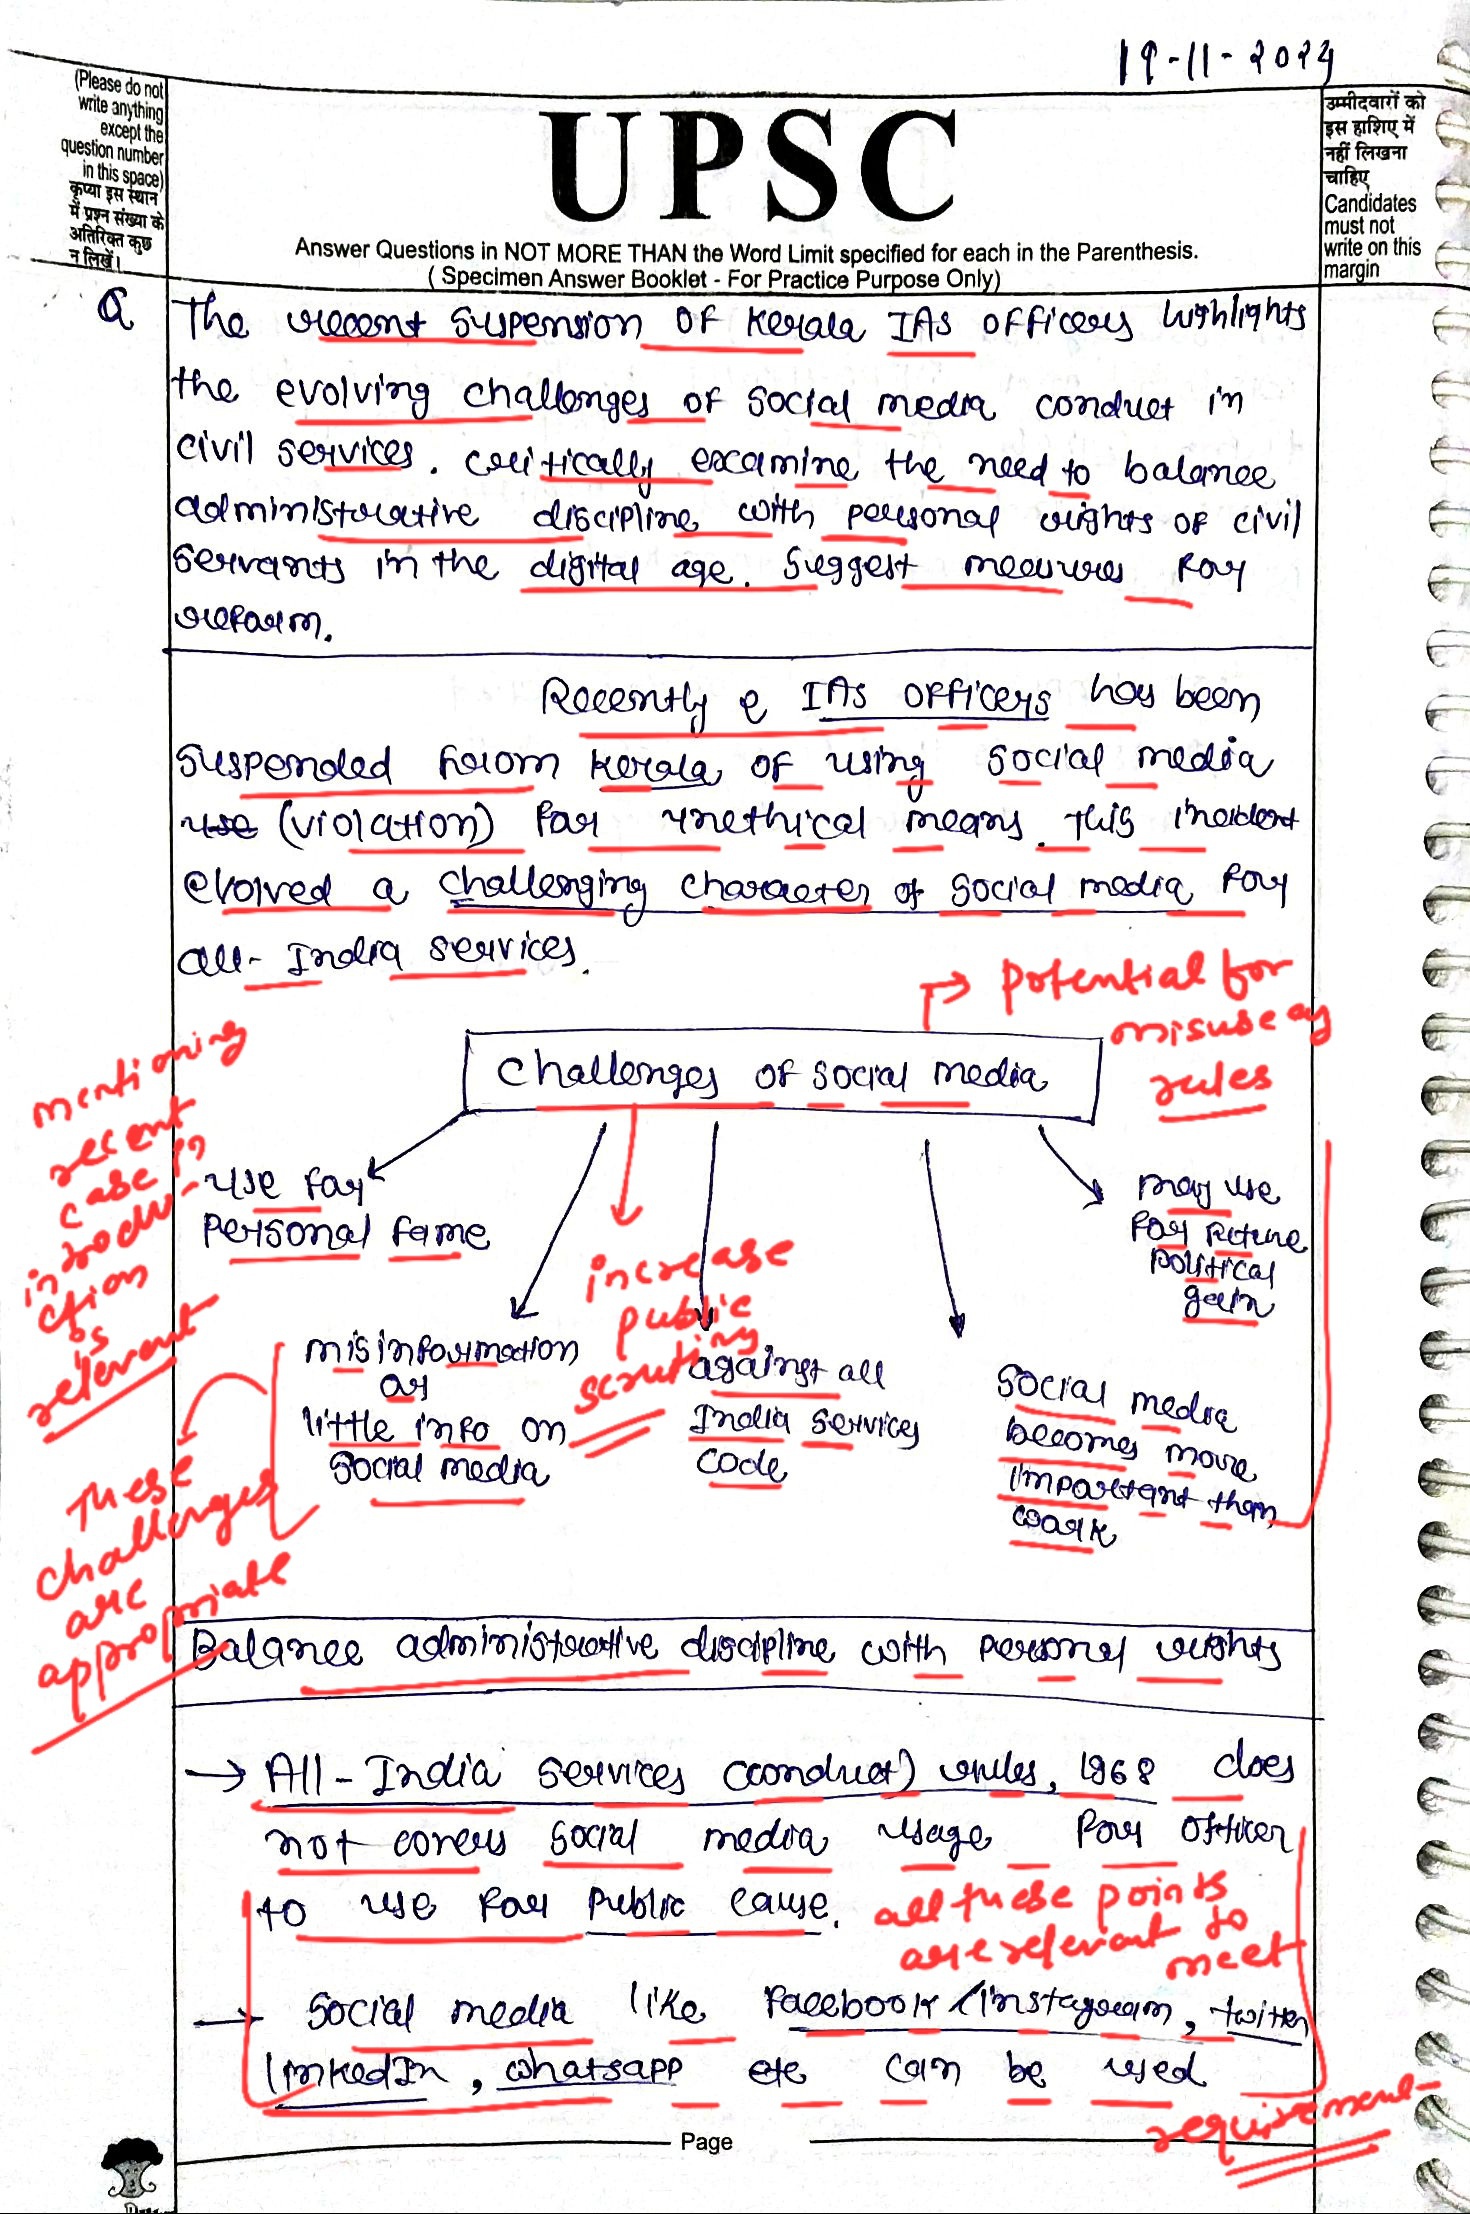 19-11-2024
(Please do not
write anything
except the
question number
in this space)
कृप्या इस स्थान
में प्रश्न संख्या के
अतिरिक्त कुछ
न लिखें।
UPSC
Answer Questions in NOT MORE THAN the Word Limit specified for each in the Parenthesis.
( Specimen Answer Booklet - For Practice Purpose Only)
उम्मीदवारों को
इस हाशिए में
नहीं लिखना
चाहिए
Candidates
must not
write on this
margin
Q The recent suspension of Kerala IAS officers highlights
the evolving challenges of social media conduct in
civil services. critically examine the need to balance
administrative discipline with personal rights of civil
servants in the digital age. Suggest measures for
reform.
Recently 2 IAS officers has been
suspended from Kerala of using social media
use (violation) for unethical means. This incident
evolved a challenging character of social media for
all- India services.
potential for
misuse of
rules
challenges of social media
mentioning
recent
case in
introdu-
ction
is
relevant
use for
personal fame
increase
public
scrutiny
may use
for future
political
gain
misinformation
or
little info on
social media
against all
India services
code
social media
becomes more
important than
work
These
challenges
are
appropriate
Balance administrative discipline with personal rights
→ All-India Services (conduct) rules, 1968 does
not covers social media usage for officer
to use for public cause.
all these points
are relevant to
meet
requirement
→ Social media like Facebook/instagram, twitter
linkedIn, whatsapp etc can be used
Page